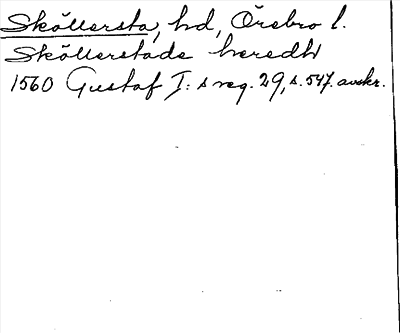 Sköllersta, hd, Örebro l.
Sköllerstade heredh
1560 Gustaf I:s reg. 29, s. 547. avskr.